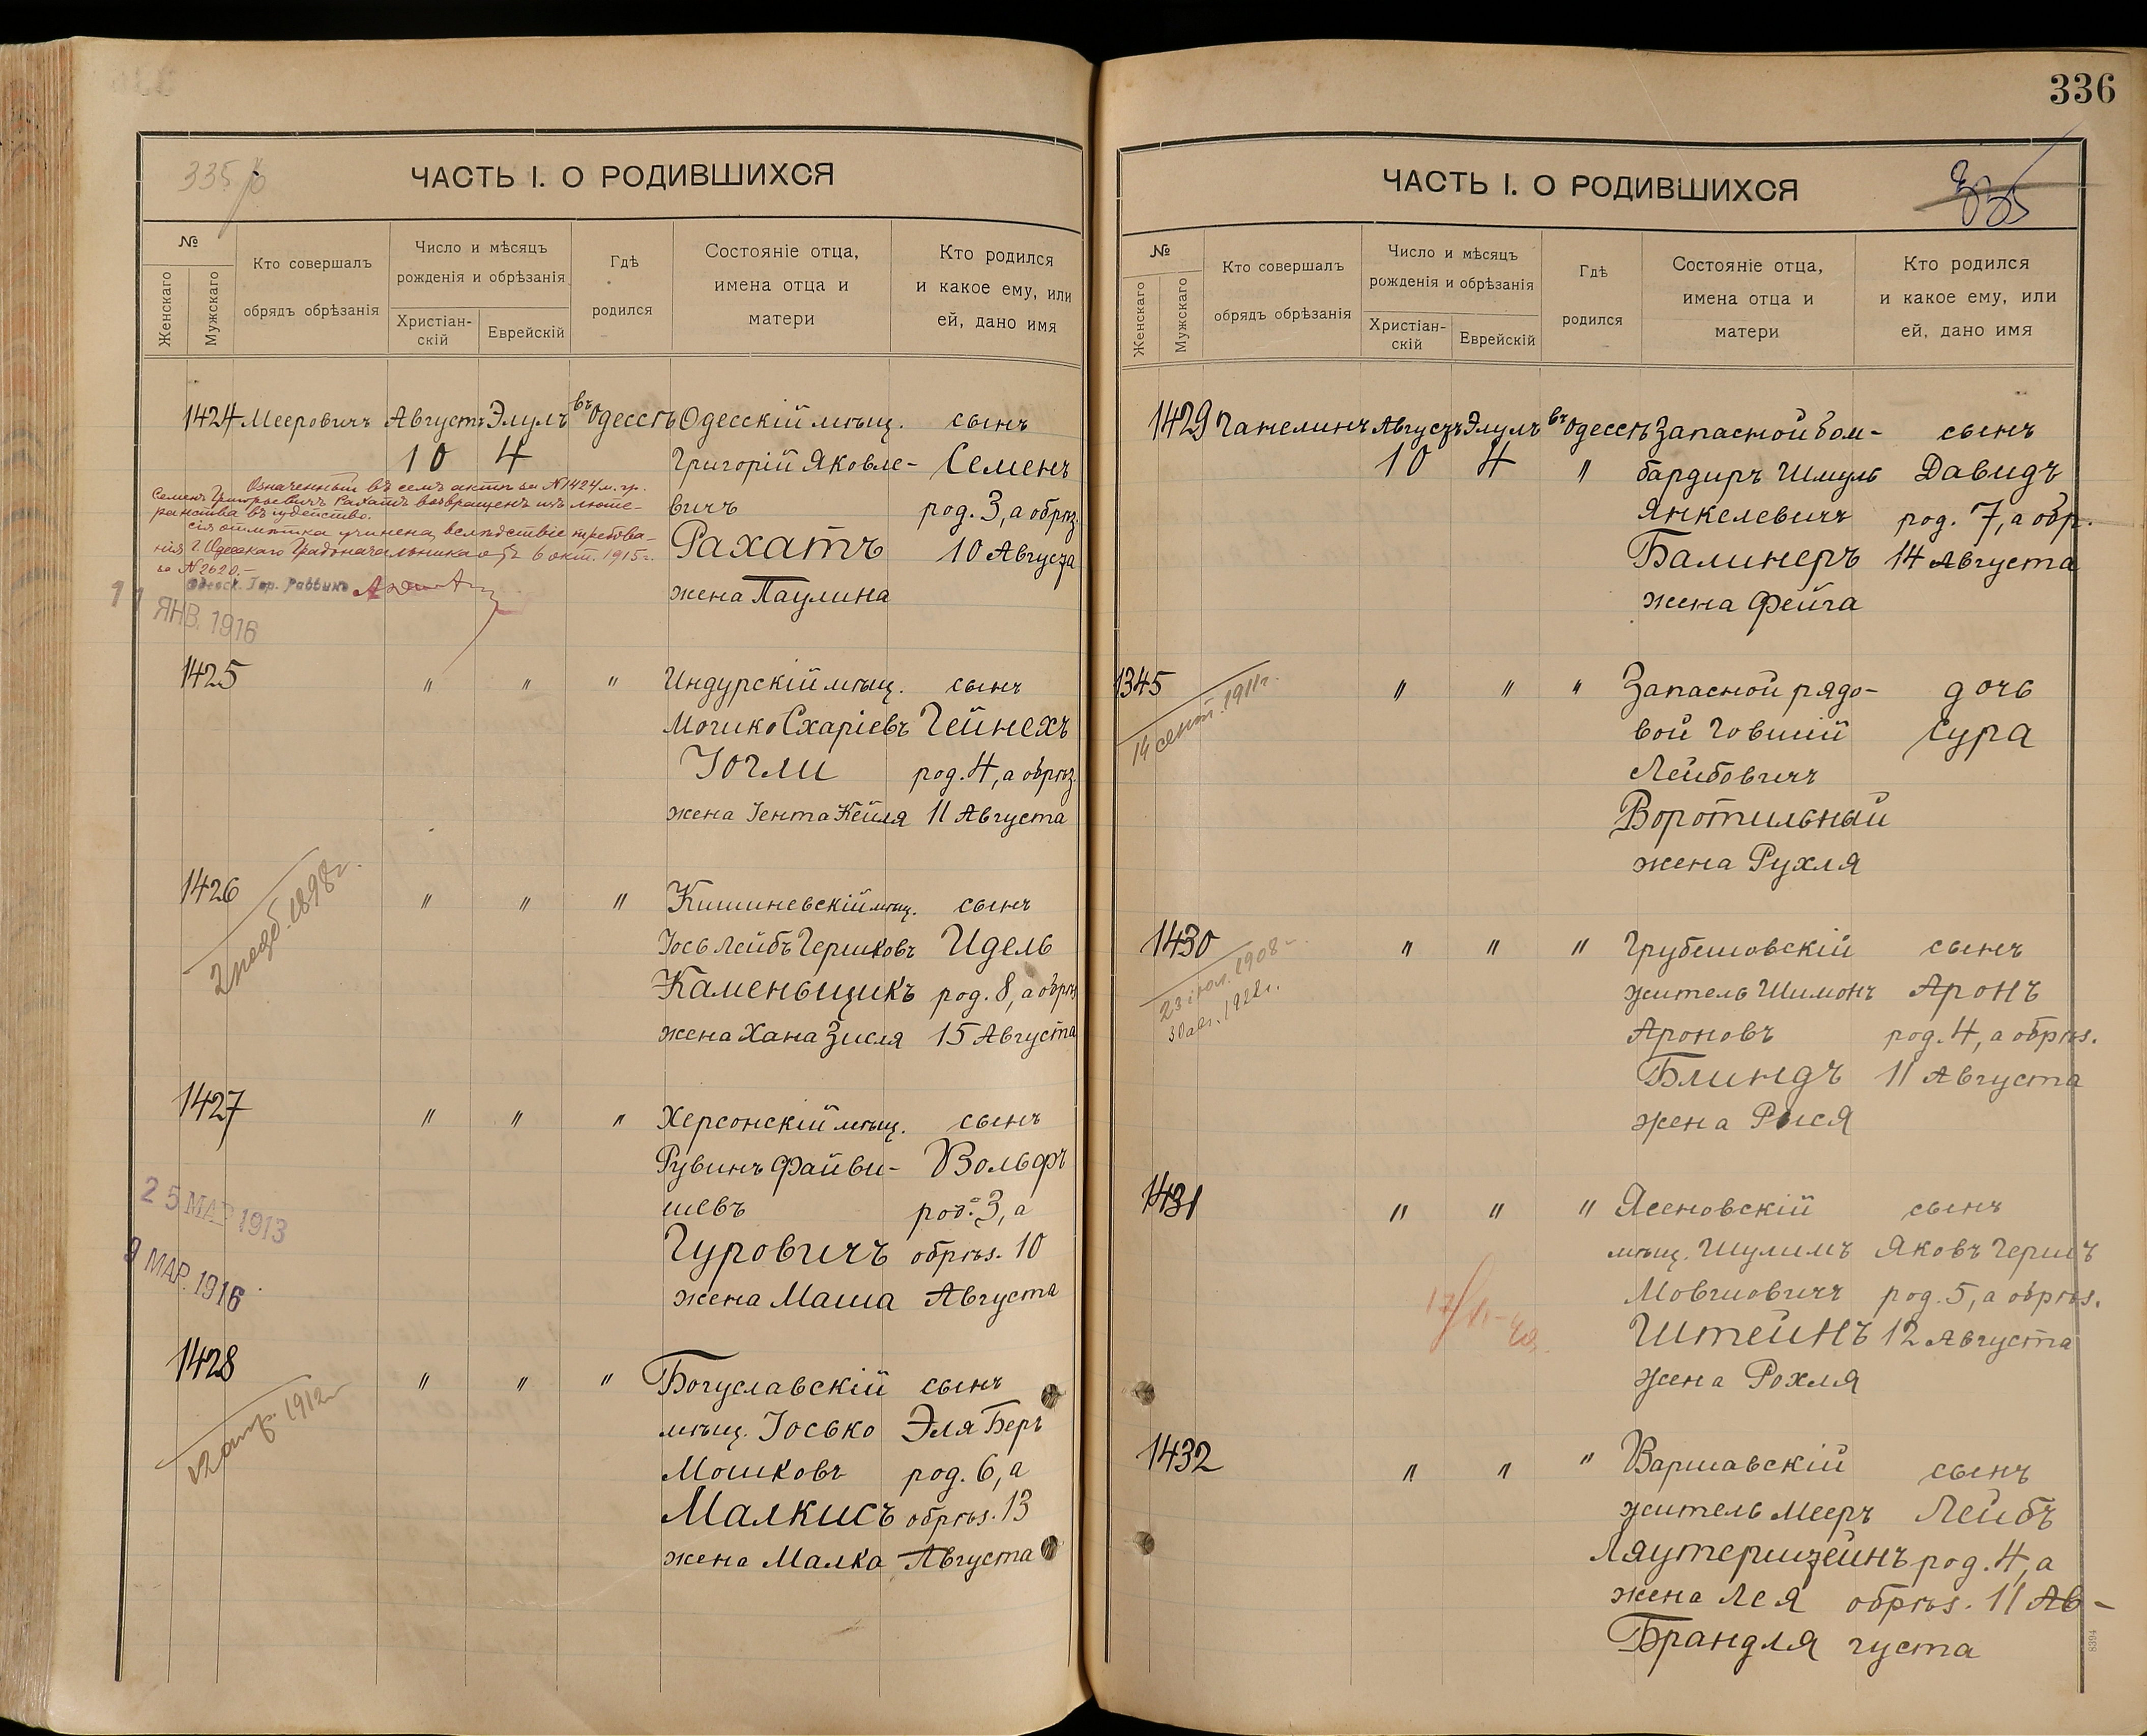 336
ЧАСТЬ I. О РОДИВШИХСЯ
№
Женскаго
Мужскаго
Кто совершалъ
обрядъ обрѣзанія
Число и мѣсяцъ
рожденія и обрѣзанія
Христіан-
скій
Еврейскій
Гдѣ
родился
Состояніе отца,
имена отца и
матери
Кто родился
и какое ему, или
ей, дано имя
1424 Мееровичъ Августъ Элулъ въ Одессѣ Одесскій мѣщ. сынъ
10 4 Григорій Яковле- Семенъ
вичъ род. 3, а обрѣз.
Рахатъ 10 Августа
жена Паулина
Означенный въ семъ актѣ за №1424 м. гр.
Семенъ Григорьевичъ Рахатъ возвращенъ изъ люте-
ранства въ іудейство.
Сія отмѣтка учинена вслѣдствіе требова-
нія Г. Одесскаго Градоначальника отъ 6 окт. 1915 г.
за №2620.-
Одесск. Гор. Раввинъ
11 ЯНВ. 1916
1425 " " " Индурскій мѣщ. сынъ
Мошко Схаріевъ Гейнехъ
Іогли род. 4, а обрѣз.
жена Іента Кейля 11 Августа
1426 " " " Кишиневскій мѣщ. сынъ
Іось Лейбъ Гершковъ Идель
Каменьщикъ род. 8, а обрѣз
жена Хана Зисля 15 Августа
1427 " " " Херсонскій мѣщ. сынъ
Рувинъ Файви- Вольфъ
шевъ род. 3, а
Гуровичъ обрѣз. 10
жена Маша Августа
25 МАР 1913
9 МАР. 1916
1428 " " " Богуславскій сынъ
мѣщ. Іосько Эля Беръ
Мошковъ род. 6, а
Малкисъ обрѣз. 13
жена Малка Августа
ЧАСТЬ I. О РОДИВШИХСЯ
335
№
Женскаго
Мужскаго
Кто совершалъ
обрядъ обрѣзанія
Число и мѣсяцъ
рожденія и обрѣзанія
Христіан-
скій
Еврейскій
Гдѣ
родился
Состояніе отца,
имена отца и
матери
Кто родился
и какое ему, или
ей, дано имя
1429 Ганелинъ Августъ Элулъ въ Одессѣ Запасной бом- сынъ
10 4 " бардиръ Шмуль Давидъ
Янкелевичъ род. 7, а обр.
Балинеръ 14 Августа
жена Фейга
1345 " " " Запасной рядо- дочь
14 сент. 1911 г. вой Говшій Сура
Лейбовичъ
Воротильный
жена Рухля
1430 " " " Грубешовскій сынъ
житель Шимонъ Аронъ
Ароновъ род. 4, а обрѣз.
Блиндъ 11 Августа
жена Рыся
1431 " " " Ясеновскій сынъ
мѣщ. Шулимъ Яковъ Гершъ
Мовшовичъ род. 5, а обрѣз.
Штейнъ 12 Августа
жена Рохля
1432 " " " Варшавскій сынъ
житель Мееръ Лейбъ
Ляутерштейнъ род. 4, а
жена Лея обрѣз. 11 Ав-
Брандля густа
8394